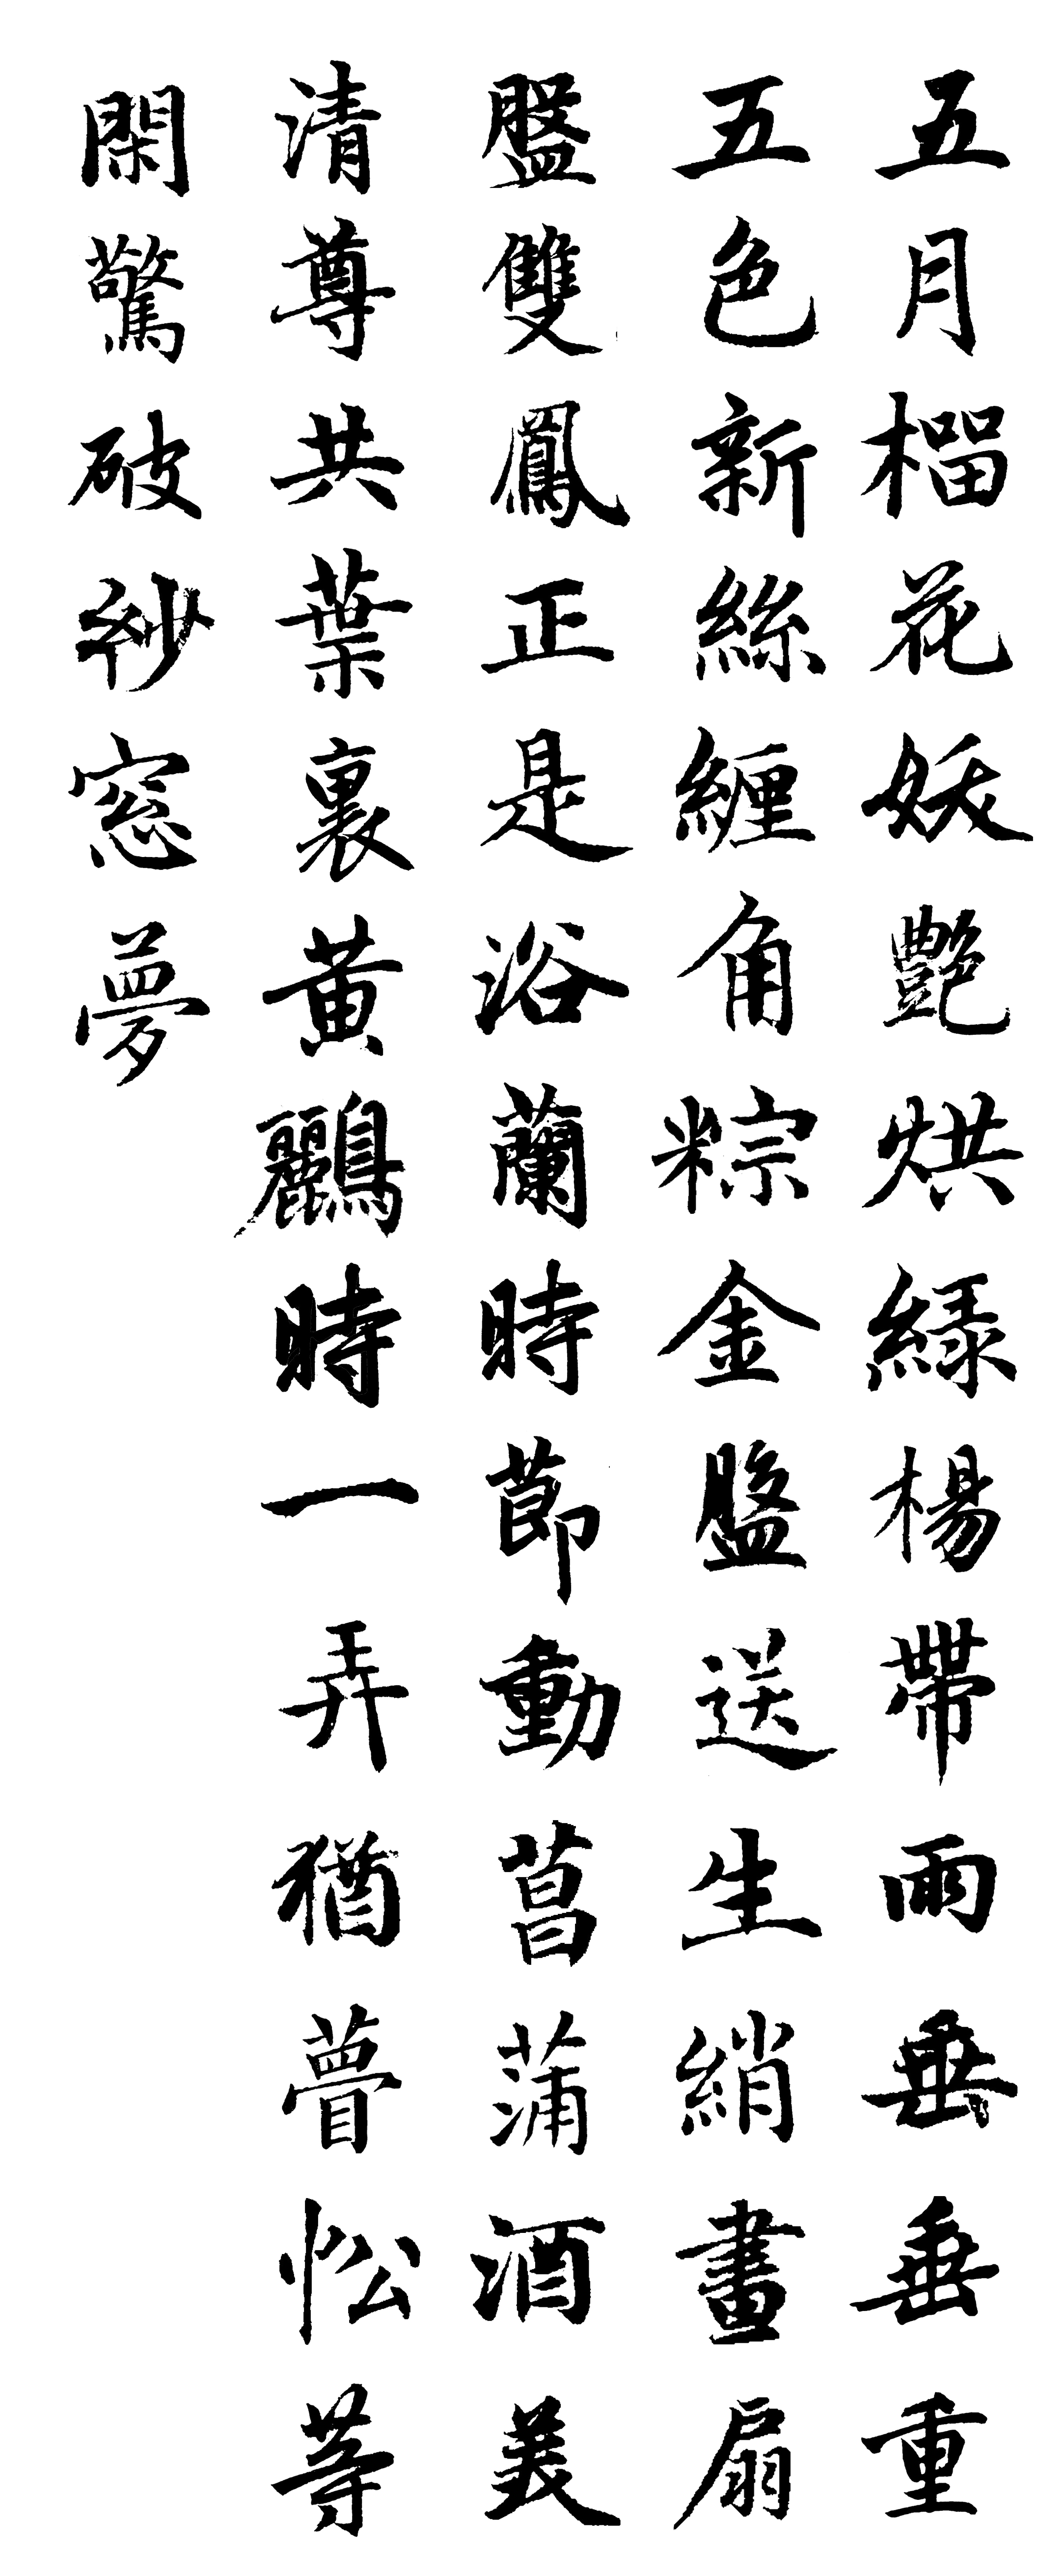 五月榴花妖艷烘綠楊帶雨垂垂重
五色新絲纏角粽金盤送生綃畫扇
盤雙鳳正是浴蘭時節動菖蒲酒美
清尊共葉裏黃鸝時一弄猶瞢忪等
閑驚破紗窓夢